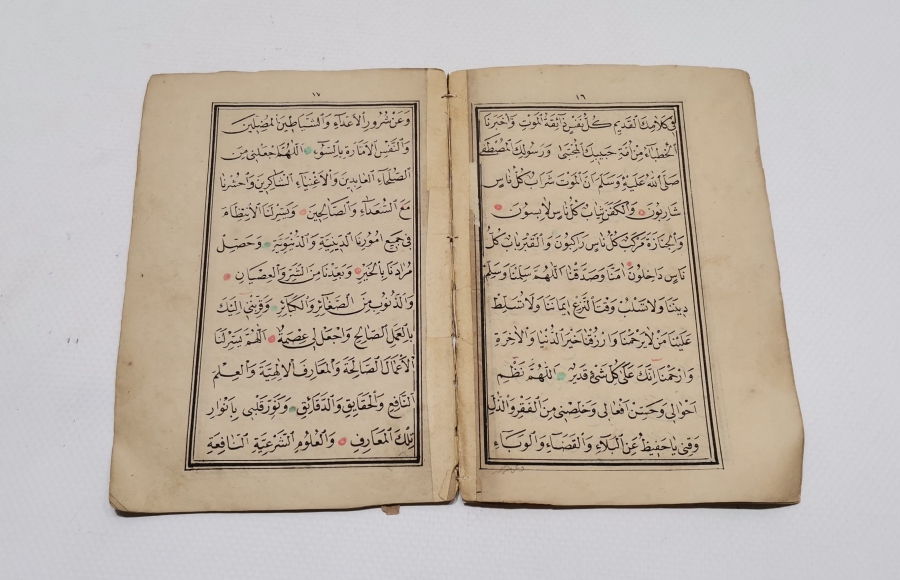 ١٦
في كلامك القديم كل نفس ذائقة الموت واخبرنا
الخطباء من امة حبيبك المجتبى ورسولك المصطفى
صلى الله عليه وسلم ان الموت شراب كل ناس
شاربون والكفن ثياب كل ناس لابسون
والجنازة مركب كل ناس راكبون والقبر باب كل
ناس داخلون امنا وصدقنا اللهم سلمنا وسلم
ديننا ولا تسلب وقت النزع ايماننا ولا تسلط
علينا من لا يرحمنا وارزقنا خير الدنيا والاخرة
وارحمنا انك على كل شئ قدير اللهم نظم
احوالي وحسن افعالي وخلصني من الفقر والذل
وقني يا حفيظ عن البلاء والقضاء والوباء
١٧
وعن شرور الاعداء والشياطين المضلين
والنفس الامارة بالسوء اللهم اجعلني من
الصلحاء العابدين والاغنياء الشاكرين واحشرنا
مع السعداء والصالحين ويسر لنا الانتظام
في جميع امورنا الدينية والدنيوية وحصل
مرادنا بالخير وبعدنا من الشر والعصيان
والذنوب من الصغائر والكبائر وقربني اليك
بالعمل الصالح واجعل لي عصمة اللهم يسر لنا
الاعمال الصالحة والمعارف الالهية والعلم
النافع والحقايق والدقائق ونور قلبي بانوار
تلك المعارف والعلوم الشرعية النافعة